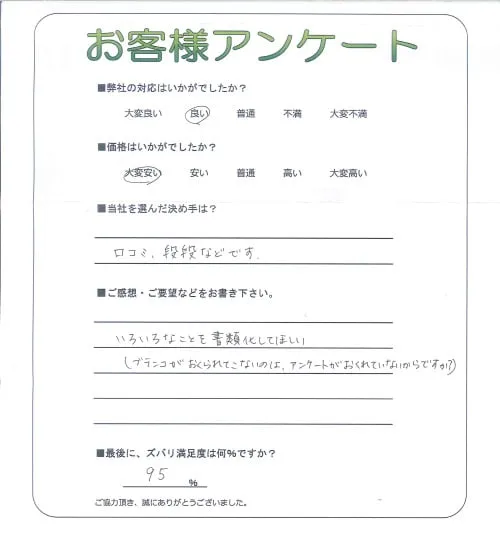 お客様アンケート
■弊社の対応はいかがでしたか?
大変良い 良い 普通 不満 大変不満
■価格はいかがでしたか?
大変安い 安い 普通 高い 大変高い
■当社を選んだ決め手は?
口コミ、段段などです.
■ご感想・ご要望などをお書き下さい。
いろいろなことを書類化してほしい
(ブランコがおくられてこないのは、アンケートがおくれていないからですか?)
■最後に、ズバリ満足度は何%ですか?
95 %
ご協力頂き、誠にありがとうございました。